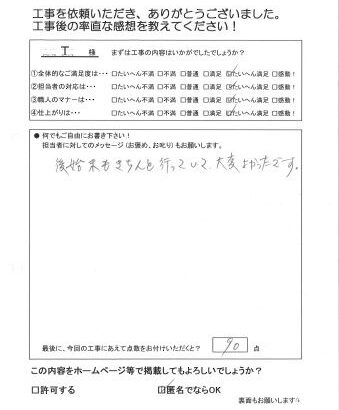 工事を依頼いただき、ありがとうございました。
工事後の率直な感想を教えてください！
T 様 まずは工事の内容はいかがでしたでしょうか？
①全体的なご満足度は・・・ □たいへん不満 □不満 □普通 □満足 ☑たいへん満足 □感動！
②担当者の対応は・・・ □たいへん不満 □不満 □普通 □満足 ☑たいへん満足 □感動！
③職人のマナーは・・・ □たいへん不満 □不満 □普通 □満足 ☑たいへん満足 □感動！
④仕上がりは・・・ □たいへん不満 □不満 □普通 □満足 ☑たいへん満足 □感動！
● 何でもご自由にお書き下さい！
担当者に対してのメッセージ（お褒め、お叱り）もお願いします。
後始末もきちんと行っていて、大変よかったです。
最後に、今回の工事にあえて点数をお付けいただくと？ 90 点
この内容をホームページ等で掲載してもよろしいでしょうか？
□許可する ☑匿名でならOK
裏面もお願いします